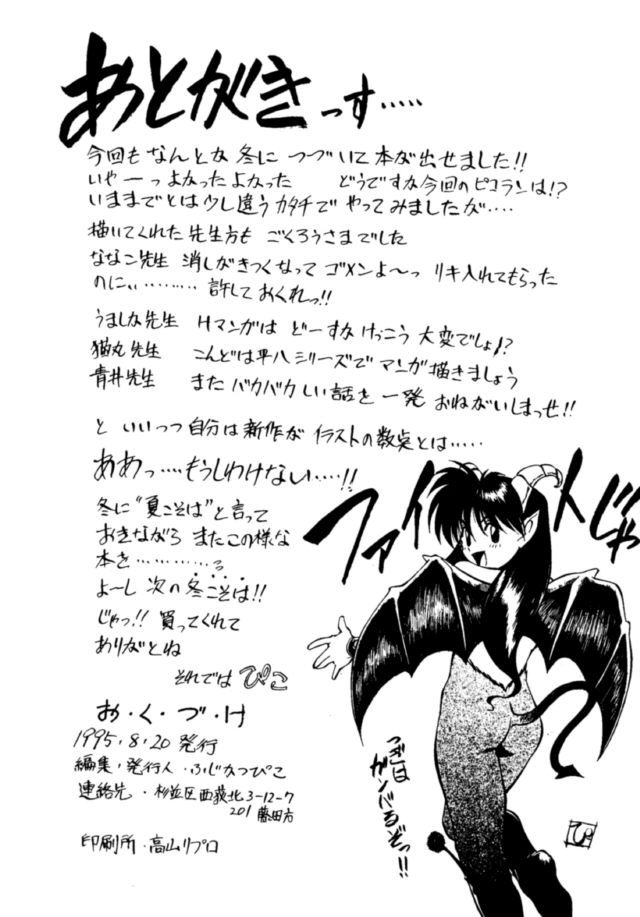 あとがきっす……
今回もなんとな冬に つづいて本が出せました!!
いやーっよかったよかった どうですな今回のピコランは!?
いままでとは少し違うカタチで やってみましたが‥‥
描いてくれた先生方も ごくろうさまでした
ななこ先生 消しがきつくなって ゴメンよ〜っ リキ入れてもらった
のにぃ‥‥‥‥ 許しておくれっ!!
うましな先生 Hマンガは どーすな けっこう大変でしょ!?
猫丸先生 こんどは平八シリーズで マンガ描きましょう
青井先生 また バカバカしい話を 一発 おねがいしまっせ!!
と いいつつ自分は新作が イラストの数点とは‥‥‥
ああっ‥‥もうしわけない‥‥!!
冬に"夏こそは"と言って
おきながら またこの様な
本を‥‥‥‥‥ろ
よーし 次の冬こそは!!
じゃっ!! 買ってくれて
ありがとね
それでは ぴこ
お・く・づ・け
1995.8.20 発行
編集・発行人・ふじなつぴこ
連絡先・杉並区西荻北3-12-7
201 藤田方
印刷所・高山リプロ
ファイトじゃ
つぎは
ガンバるぞっ!!
ぴ